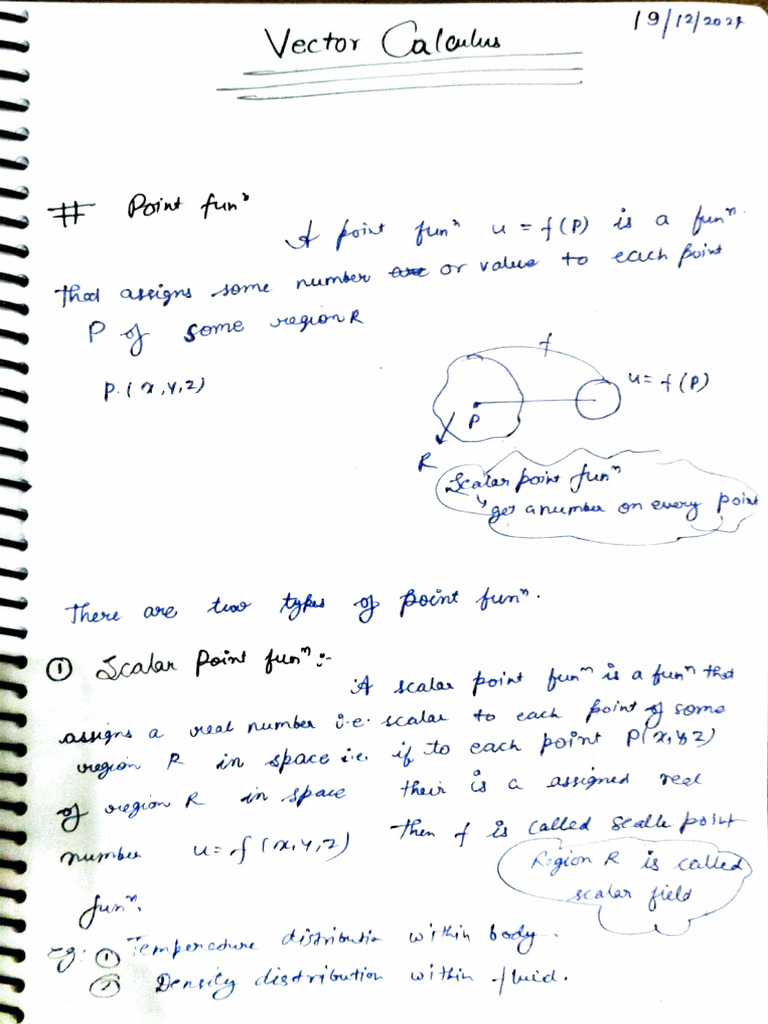 19/12/2024
Vector Calculus
# Point funⁿ
A point funⁿ u = f(P) is a funⁿ.
That assigns some number or value to each point
P of some region R
P.(x,y,z)
f
u = f(P)
P
R
Scalar point funⁿ
↳ get a number on every point
There are two types of point funⁿ.
① Scalar Point funⁿ :-
A scalar point funⁿ is a funⁿ that
assigns a real number i.e. scalar to each point of some
region R in space i.e. if to each point P(x,y,z)
of region R in space their is a assigned real
number u = f(x,y,z) Then f is called point
funⁿ.
Region R is called
scalar field
Eg: ① Temperature distributio within body.
② Density distribution within fluid.